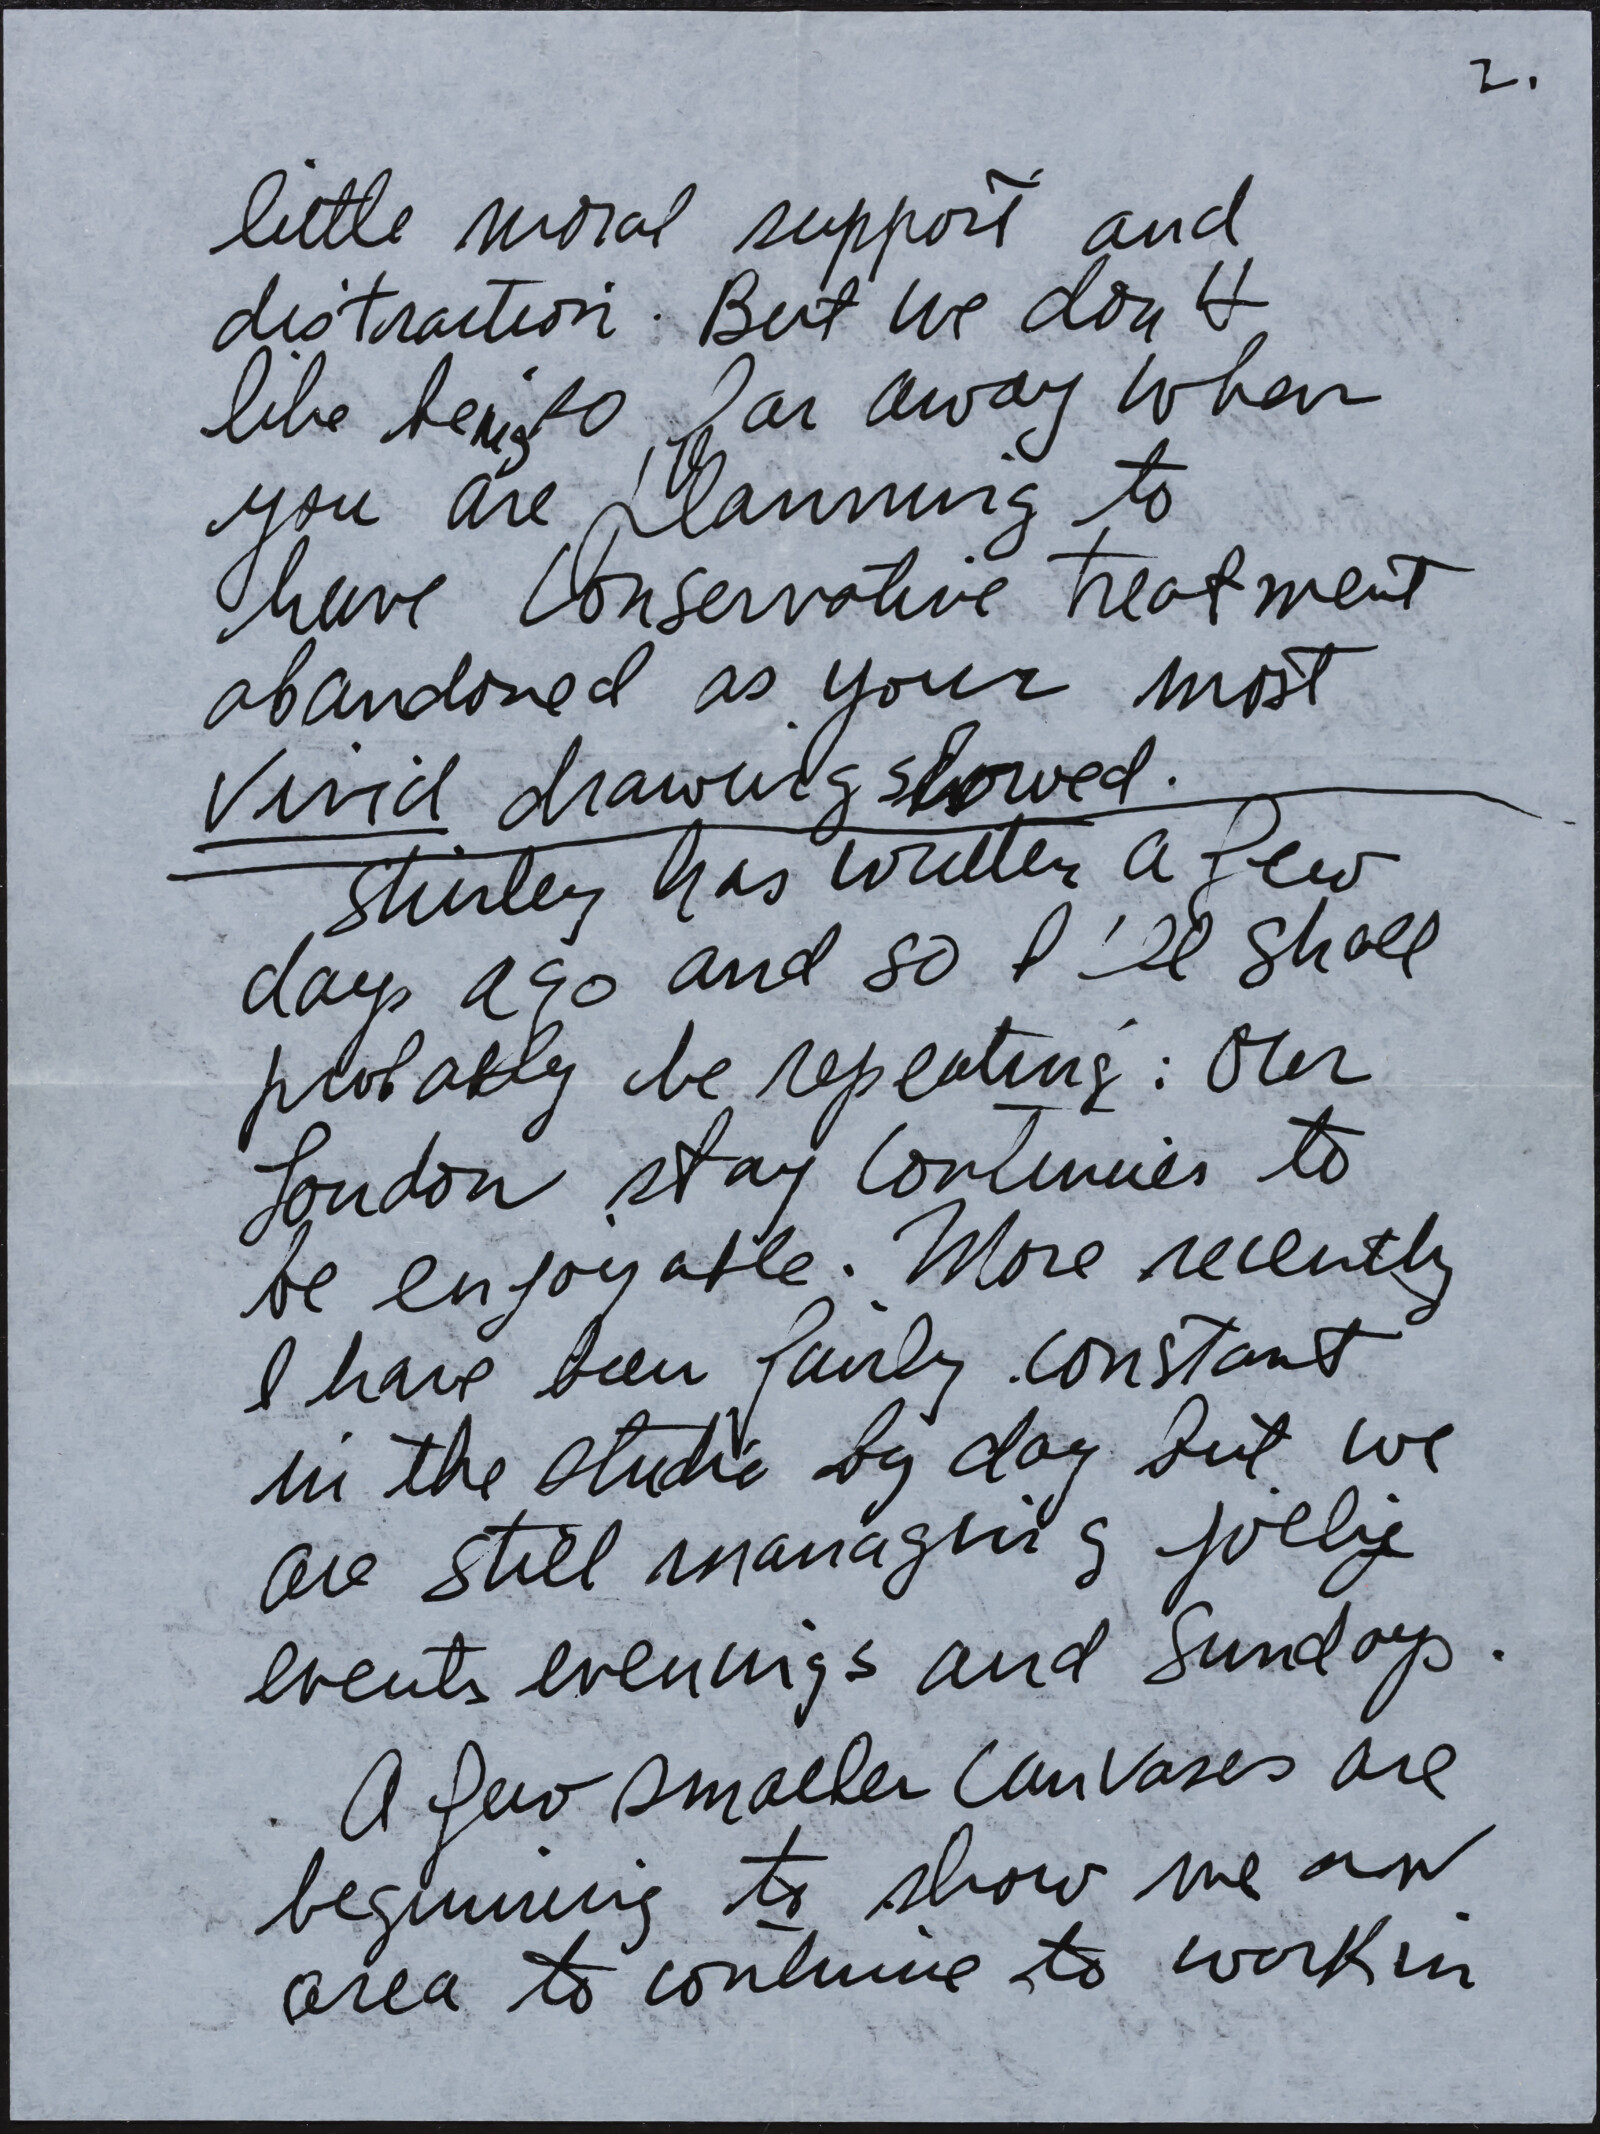 2.
little moral support and
distraction. But we don't
like being so far away when
you are planning to
have conservative treatment
abandoned as your most
vivid drawing showed.
Shirley has written a few
days ago and so I'll shall
probably be repeating: Our
London stay continues to
be enjoyable. More recently
I have been fairly constant
in the studio by day but we
are still managing jolly
events evenings and Sundays.
A few smaller canvases are
beginning to show me an
area to continue to work in